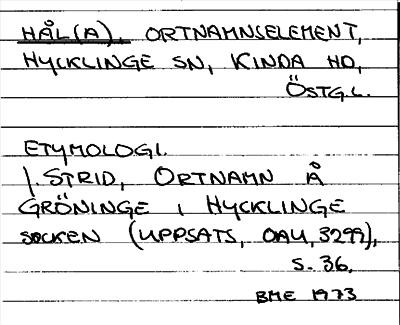 HÅL(A), ORTNAMNSELEMENT,
HYCKLINGE SN, KINDA HD,
ÖSTG.L.
ETYMOLOGI.
I. STRID, ORTNAMN Å
GRÖNINGE I HYCKLINGE
SOCKEN (UPPSATS, OAU, 3299),
S. 36.
BME 1973